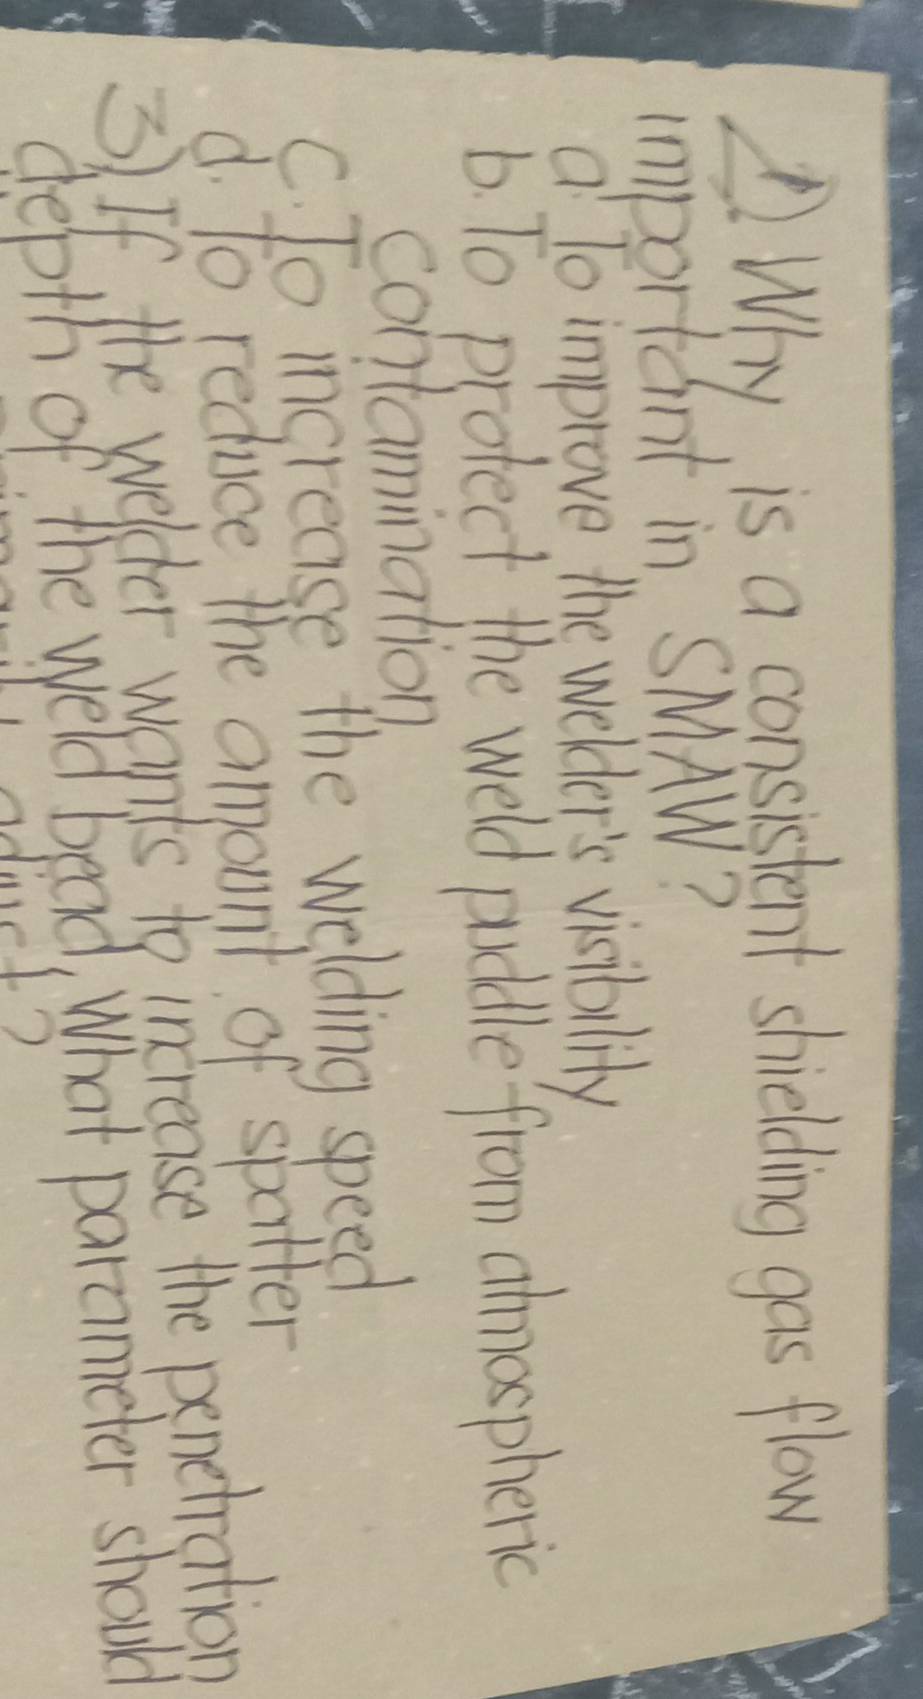 2) Why is a consistent shielding gas flow
important in SMAW?
a. To improve the welder's visibility
b. To protect the weld puddle from atmospheric
contamination
c. To increase the welding speed
d. To reduce the amount of spatter
3) If the welder wants to increase the penetration
depth of the weld bead, what parameter should